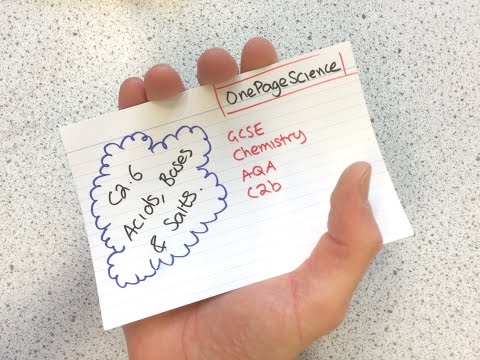 OnePageScience
GCSE
Chemistry
AQA
C2b
C2.6
Acids, Bases
& Salts.